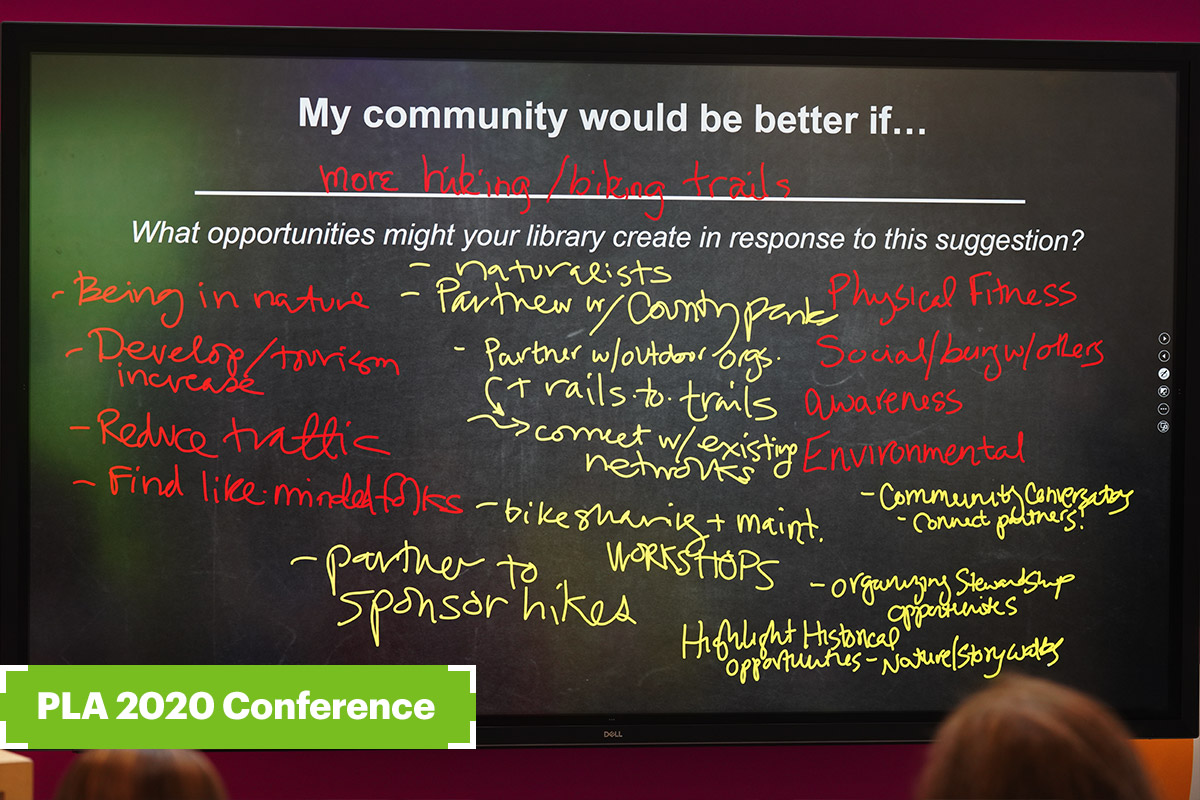 My community would be better if...
more hiking/biking trails
What opportunities might your library create in response to this suggestion?
- Being in nature
- Develop/tourism
increase
- Reduce traffic
- Find like-minded folks
- naturalists
- Partner w/ County parks
- Partner w/outdoor orgs.
+ rails-to-trails
connect w/ existing
networks
- bikesharing + maint.
WORKSHOPS
- partner to
sponsor hikes
Physical Fitness
Social/being w/others
awareness
Environmental
- Community Conversations
- Connect partners!
- organizing Stewardship
opportunities
Highlight Historical
opportunities - Nature/Story walks
DELL
PLA 2020 Conference